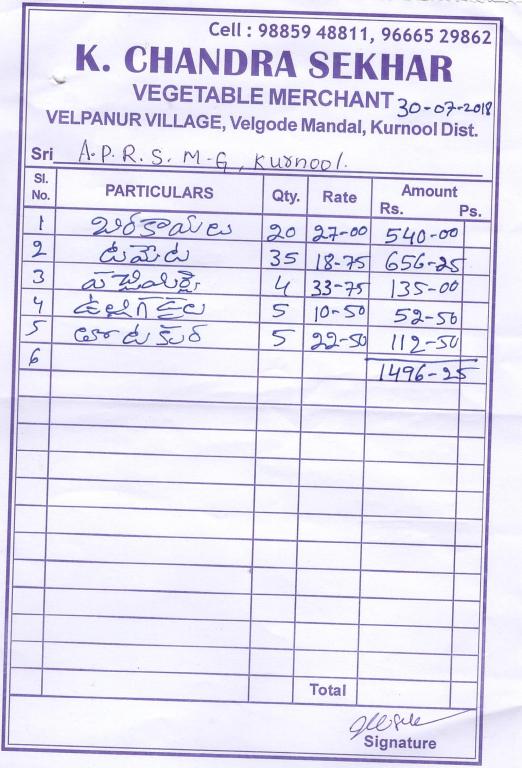 Cell : 98859 48811, 96665 29862
K. CHANDRA SEKHAR
VEGETABLE MERCHANT 30-07-2018
VELPANUR VILLAGE, Velgode Mandal, Kurnool Dist.
Sri A.P.R.S. M-G, Kurnool.
Sl. No. PARTICULARS Qty. Rate Amount Rs. Ps.
1 బీరకాయలు 20 27-00 540-00
2 టమేటు 35 18-75 656-25
3 పచ్చిమిర్చి 4 33-75 135-00
4 ఉల్లిగడ్డలు 5 10-50 52-50
5 తోటకూర 5 22-50 112-50
6 1496-25
Total
Signature